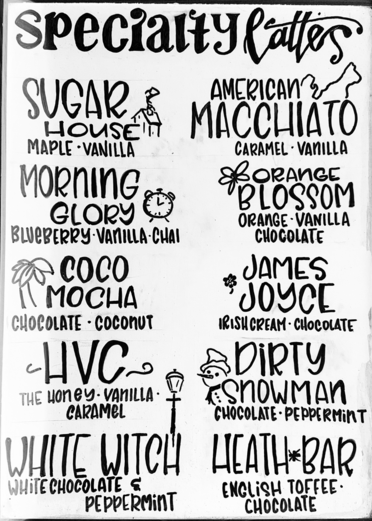 specialty lattes
SUGAR
HOUSE
MAPLE · VANILLA
AMERICAN
MACCHIATO
CARAMEL · VANILLA
MORNING
GLORY
BLUEBERRY · VANILLA · CHAI
ORANGE
BLOSSOM
ORANGE · VANILLA
CHOCOLATE
COCO
MOCHA
CHOCOLATE · COCONUT
JAMES
JOYCE
IRISH CREAM · CHOCOLATE
HVC
THE HONEY · VANILLA ·
CARAMEL
DIRTY
SNOWMAN
CHOCOLATE · PEPPERMINT
WHITE WITCH
WHITE CHOCOLATE &
PEPPERMINT
HEATH BAR
ENGLISH TOFFEE ·
CHOCOLATE